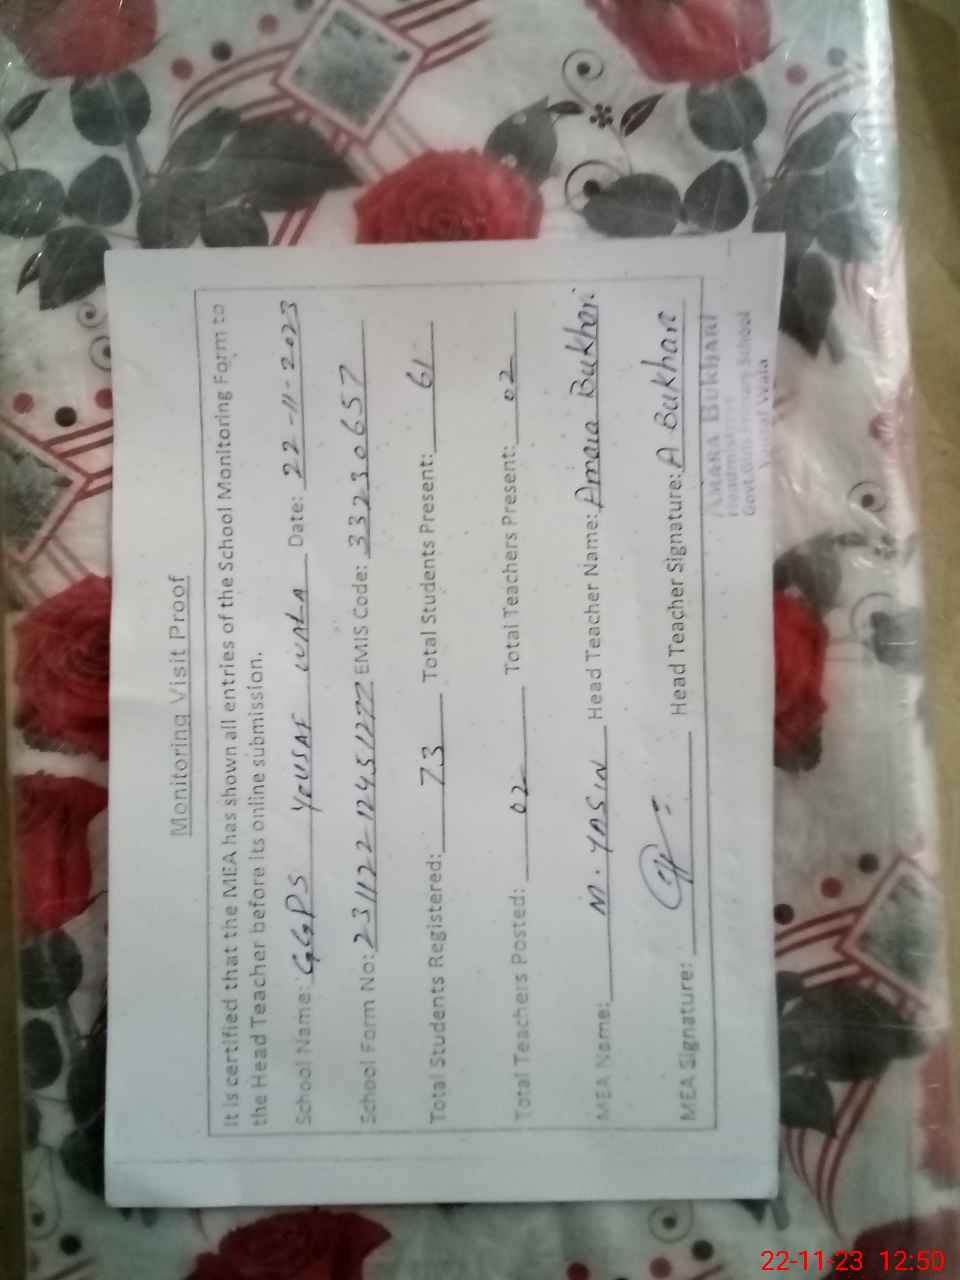 Monitoring Visit Proof
It is certified that the MEA has shown all entries of the School Monitoring Form to
the Head Teacher before its online submission.
School Name: GGPS YOUSAF WALA Date: 22-11-2023
School Form No: EMIS Code: 33230657
Total Students Registered: 73 Total Students Present: 61
Total Teachers Posted: 02 Total Teachers Present: 02
MEA Name: M. YASIN Head Teacher Name: Amara Bukhari
MEA Signature: Head Teacher Signature: A Bukhari
AMARA BUKHARI
Headmistress
Govt.Girls Primary School
Yousaf Wala
22-11-23 12:50